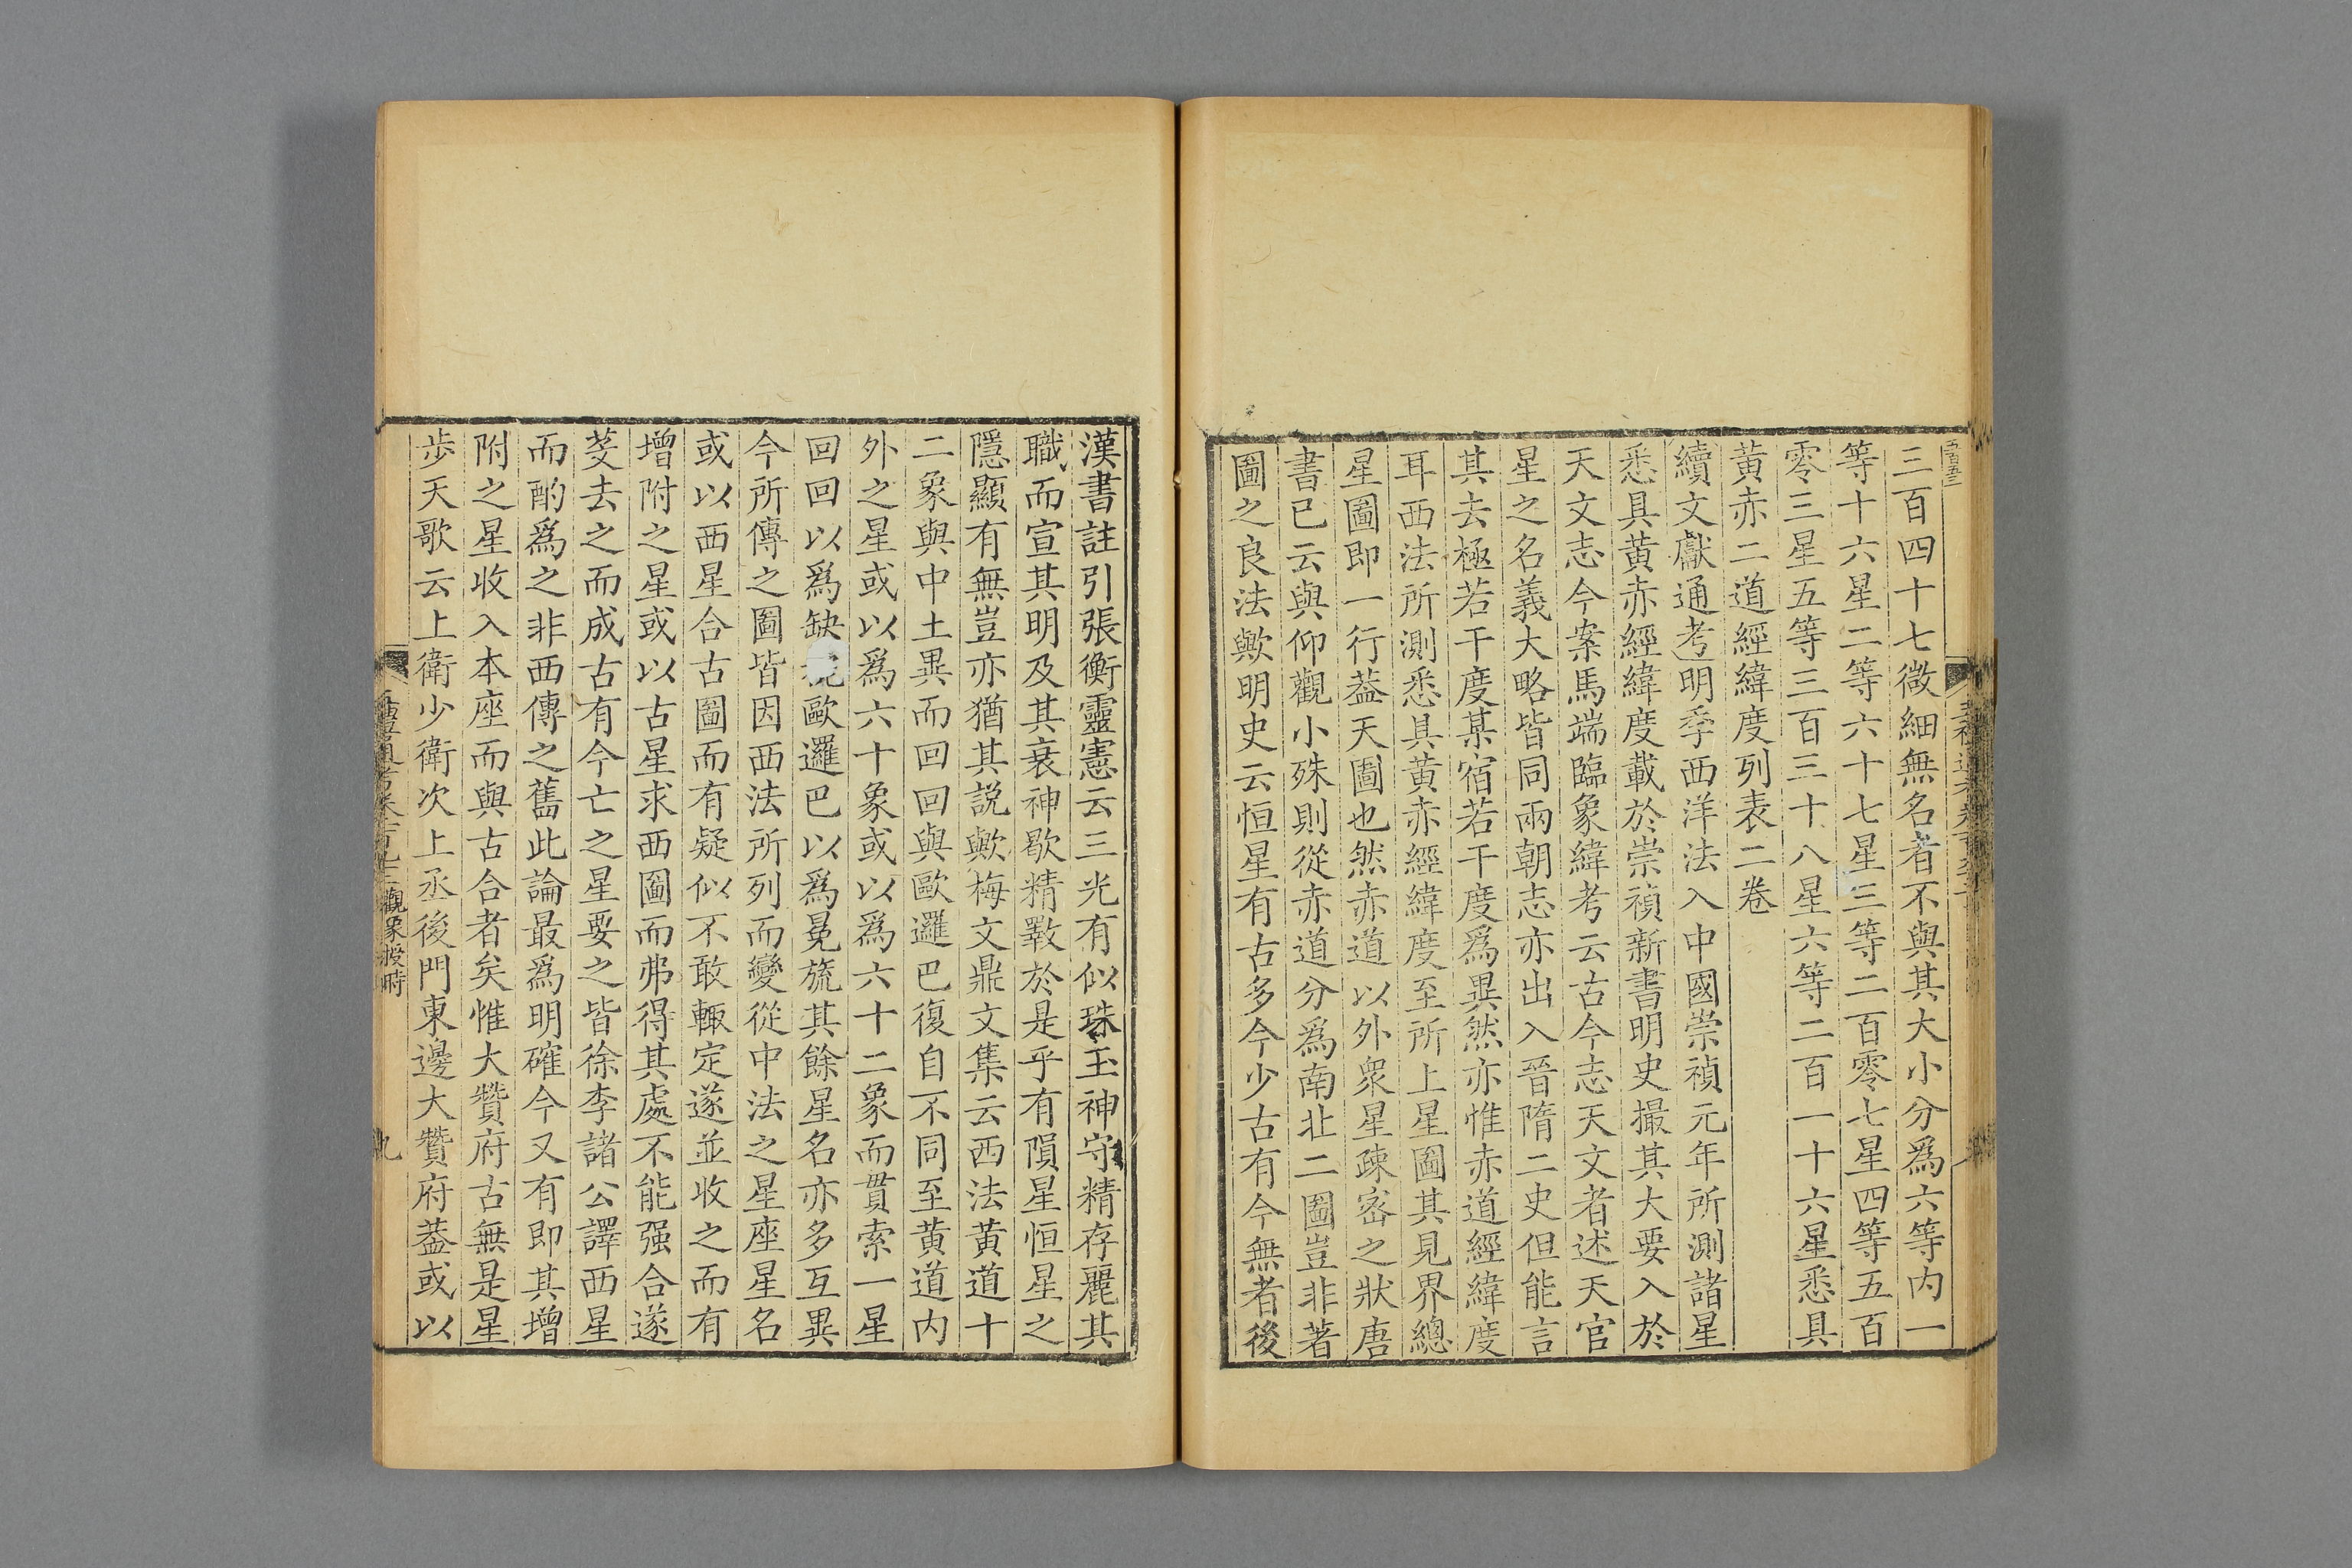 三百四十七微細無名者不與其大小分爲六等内一
等十六星二等六十七星三等二百零七星四等五百
零三星五等三百三十八星六等二百一十六星悉具
黃赤二道經緯度列表二卷
續文獻通考明季西洋法入中國崇禎元年所測諸星
悉具黃赤經緯度載於崇禎新書明史撮其大要入於
天文志今案馬端臨象緯考云古今志天文者述天官
星之名義大略皆同兩朝志亦出入晉隋二史但能言
其去極若干度某宿若干度爲異然亦惟赤道經緯度
耳西法所測悉具黃赤經緯度至所上星圖其見界總
星圖即一行葢天圖也然赤道以外衆星疎密之狀唐
書已云與仰觀小殊則從赤道分爲南北二圖豈非著
圖之良法歟明史云恒星有古多今少古有今無者後
漢書註引張衡靈憲云三光有似珠玉神守精存麗其
職而宣其明及其衰神歇精斁於是乎有隕星恒星之
隱顯有無豈亦猶其説歟梅文鼎文集云西法黃道十
二象與中土異而回回與歐邏巴復自不同至黃道内
外之星或以爲六十象或以爲六十二象而貫索一星
回回以爲缺椀歐邏巴以爲冕旒其餘星名亦多互異
今所傳之圖皆因西法所列而變從中法之星座星名
或以西星合古圖而有疑似不敢輒定遂並收之而有
增附之星或以古星求西圖而弗得其處不能强合遂
芟去之而成古有今亡之星要之皆徐李諸公譯西星
而酌爲之非西傳之舊此論最爲明確今又有即其增
附之星收入本座而與古合者矣惟大贊府古無是星
步天歌云上衛少衛次上丞後門東邊大贊府葢或以
觀象授時
九